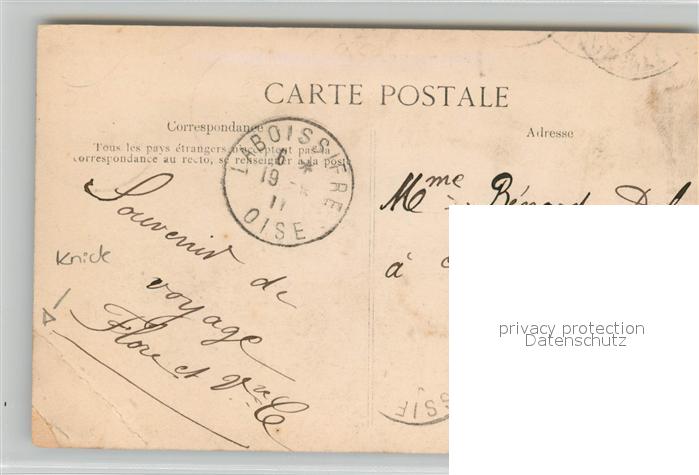 CARTE POSTALE
Correspondance
Tous les pays étrangers n'acceptent pas la
correspondance au recto, se renseigner à la poste
Adresse
LABOISSIERE
6 *
19 - *
11
OISE
Souvenir de
voyage
Flore et Vve C
Mme Bénard
à
Knick
privacy protection
Datenschutz
SSIF